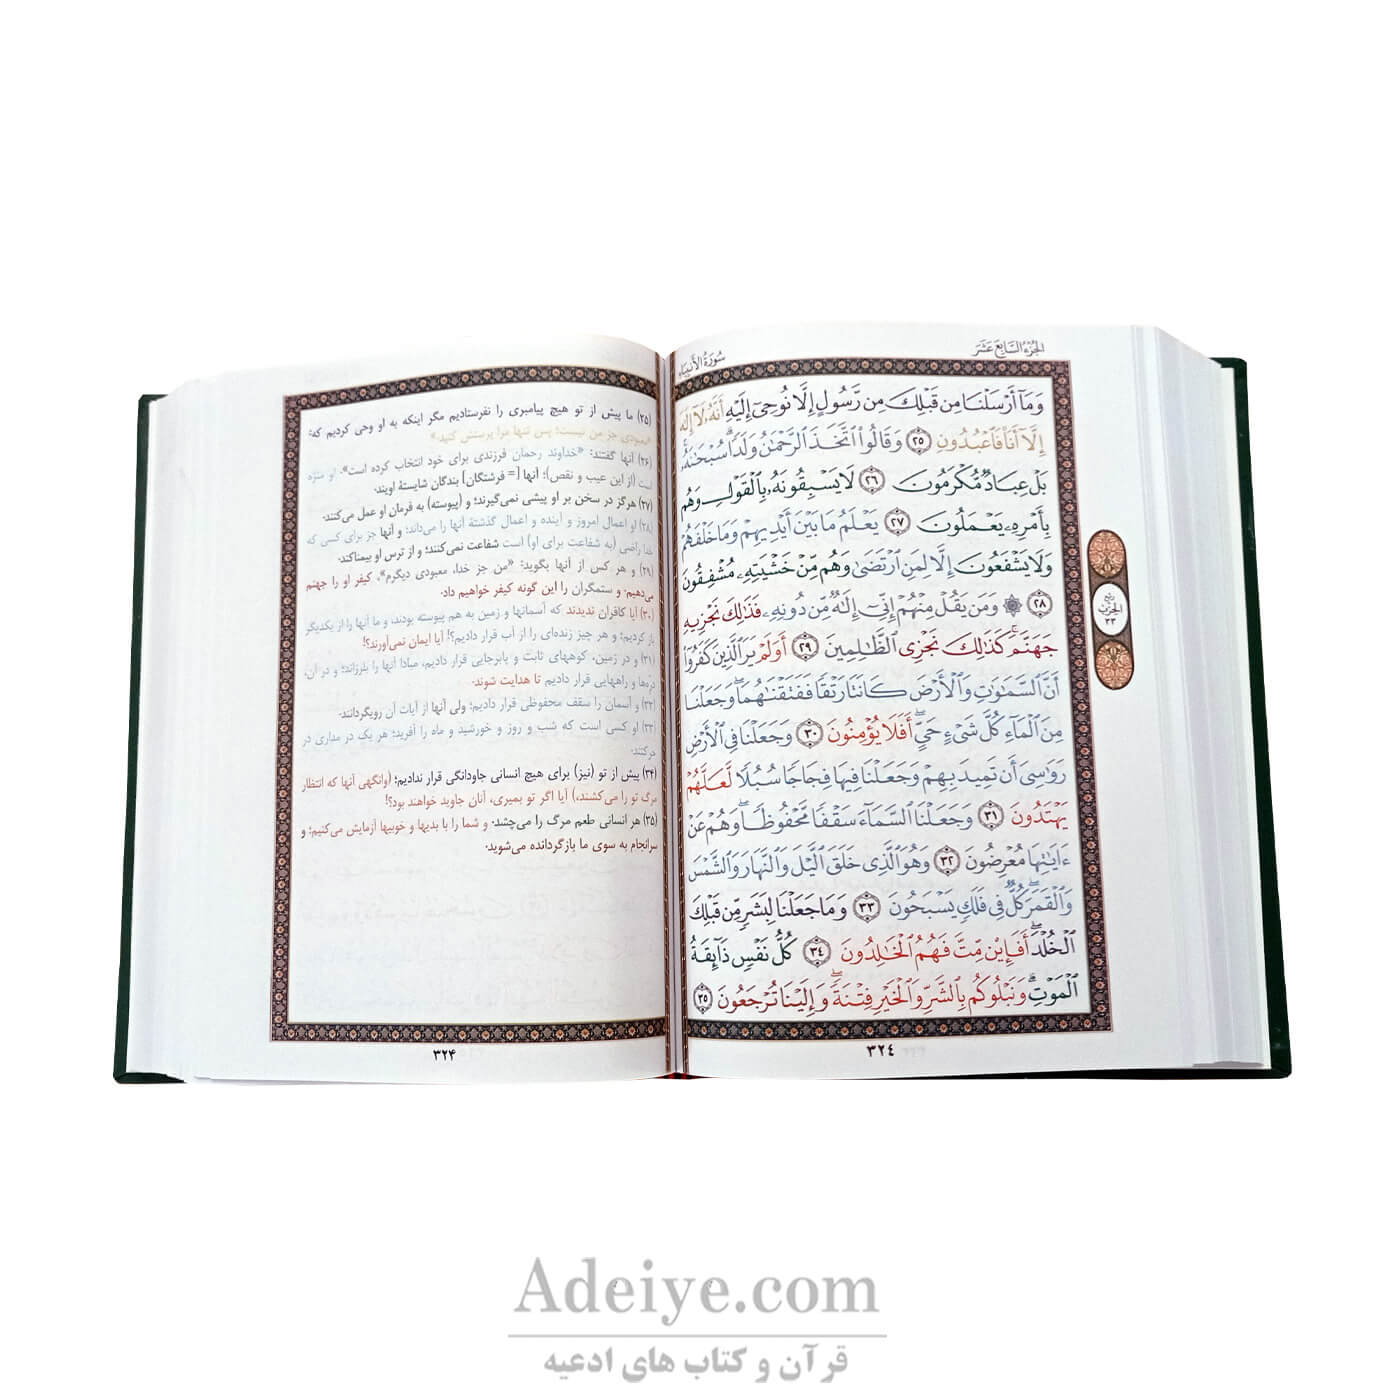 الجزء السابع عشر
سورة الأنبیاء
وَمَآ أَرْسَلْنَا مِن قَبْلِكَ مِن رَّسُولٍ إِلَّا نُوحِىٓ إِلَيْهِ أَنَّهُۥ لَآ إِلَٰهَ
إِلَّآ أَنَا۠ فَٱعْبُدُونِ ٢٥ وَقَالُوا۟ ٱتَّخَذَ ٱلرَّحْمَٰنُ وَلَدًا ۗ سُبْحَٰنَهُۥ ۚ
بَلْ عِبَادٌ مُّكْرَمُونَ ٢٦ لَا يَسْبِقُونَهُۥ بِٱلْقَوْلِ وَهُم
بِأَمْرِهِۦ يَعْمَلُونَ ٢٧ يَعْلَمُ مَا بَيْنَ أَيْدِيهِمْ وَمَا خَلْفَهُمْ
وَلَا يَشْفَعُونَ إِلَّا لِمَنِ ٱرْتَضَىٰ وَهُم مِّنْ خَشْيَتِهِۦ مُشْفِقُونَ
٢٨ ۞ وَمَن يَقُلْ مِنْهُمْ إِنِّىٓ إِلَٰهٌ مِّن دُونِهِۦ فَذَٰلِكَ نَجْزِيهِ
جَهَنَّمَ ۚ كَذَٰلِكَ نَجْزِى ٱلظَّٰلِمِينَ ٢٩ أَوَلَمْ يَرَ ٱلَّذِينَ كَفَرُوٓا۟
أَنَّ ٱلسَّمَٰوَٰتِ وَٱلْأَرْضَ كَانَتَا رَتْقًا فَفَتَقْنَٰهُمَا ۖ وَجَعَلْنَا
مِنَ ٱلْمَآءِ كُلَّ شَىْءٍ حَىٍّ ۖ أَفَلَا يُؤْمِنُونَ ٣٠ وَجَعَلْنَا فِى ٱلْأَرْضِ
رَوَٰسِىَ أَن تَمِيدَ بِهِمْ وَجَعَلْنَا فِيهَا فِجَاجًا سُبُلًا لَّعَلَّهُمْ
يَهْتَدُونَ ٣١ وَجَعَلْنَا ٱلسَّمَآءَ سَقْفًا مَّحْفُوظًا ۖ وَهُمْ عَنْ
ءَايَٰتِهَا مُعْرِضُونَ ٣٢ وَهُوَ ٱلَّذِى خَلَقَ ٱلَّيْلَ وَٱلنَّهَارَ وَٱلشَّمْسَ
وَٱلْقَمَرَ ۖ كُلٌّ فِى فَلَكٍ يَسْبَحُونَ ٣٣ وَمَا جَعَلْنَا لِبَشَرٍ مِّن قَبْلِكَ
ٱلْخُلْدَ ۖ أَفَإِي۟ن مِّتَّ فَهُمُ ٱلْخَٰلِدُونَ ٣٤ كُلُّ نَفْسٍ ذَآئِقَةُ
ٱلْمَوْتِ ۗ وَنَبْلُوكُم بِٱلشَّرِّ وَٱلْخَيْرِ فِتْنَةً ۖ وَإِلَيْنَا تُرْجَعُونَ ٣٥
ربع
الحزب
٣٣
٣٢٤
(۲۵) ما پیش از تو هیچ پیامبری را نفرستادیم مگر اینکه به او وحی کردیم که:
«معبودی جز من نیست؛ پس تنها مرا پرستش کنید.»
(۲۶) آنها گفتند: «خداوند رحمان فرزندی برای خود انتخاب کرده است». او منزه
است (از این عیب و نقص)؛ آنها [= فرشتگان] بندگان شایستهٔ اویند.
(۲۷) هرگز در سخن بر او پیشی نمی‌گیرند؛ و (پیوسته) به فرمان او عمل می‌کنند.
(۲۸) او اعمال امروز و آینده و اعمال گذشتهٔ آنها را می‌داند؛ و آنها جز برای کسی که
خدا راضی (به شفاعت برای او) است شفاعت نمی‌کنند؛ و از ترس او بیمناکند.
(۲۹) و هر کس از آنها بگوید: «من جز خدا، معبودی دیگرم»، کیفر او را جهنم
می‌دهیم. و ستمگران را این گونه کیفر خواهیم داد.
(۳۰) آیا کافران ندیدند که آسمانها و زمین به هم پیوسته بودند، و ما آنها را از یکدیگر
باز کردیم؛ و هر چیز زنده‌ای را از آب قرار دادیم؟! آیا ایمان نمی‌آورند؟!
(۳۱) و در زمین، کوههای ثابت و پابرجایی قرار دادیم، مبادا آنها را بلرزاند؛ و در آن،
دره‌ها و راههایی قرار دادیم تا هدایت شوند.
(۳۲) و آسمان را سقف محفوظی قرار دادیم؛ ولی آنها از آیات آن رویگردانند.
(۳۳) او کسی است که شب و روز و خورشید و ماه را آفرید؛ هر یک در مداری در
حرکتند.
(۳۴) پیش از تو (نیز) برای هیچ انسانی جاودانگی قرار ندادیم؛ (وانگهی آنها که انتظار
مرگ تو را می‌کشند،) آیا اگر تو بمیری، آنان جاوید خواهند بود؟!
(۳۵) هر انسانی طعم مرگ را می‌چشد. و شما را با بدیها و خوبیها آزمایش می‌کنیم؛ و
سرانجام به سوی ما بازگردانده می‌شوید.
۳۲۴
Adeiye.com
قرآن و کتاب های ادعیه